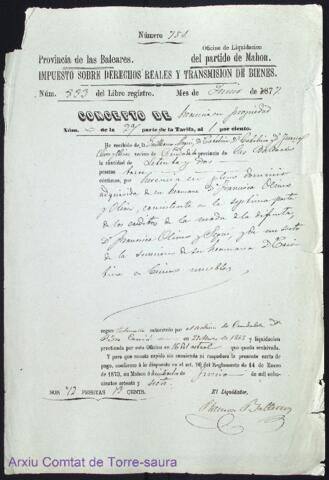 Número 751
Provincia de las Baleares.
Oficina de Liquidacion
del partido de Mahon.
IMPUESTO SOBRE DERECHOS REALES Y TRANSMISION DE BIENES.
Núm. 393 del Libro registro. Mes de Junio de 1877
CONCEPTO DE herencia en propiedad
Núm. de la 29 parte de la Tarifa, al 1 por ciento.
He recibido de D.
vecino de Ciudadela provincia de las Baleares
la cantidad de setenta y dos
pesetas trece
céntimos, por herencia en pleno dominio
adquirida de su hermana Dª Francisca Olives
y Olives, consistente en la septima parte
de los creditos de la madre de la difunta,
Dª Francisca Olives y Seguí, y de un sexto
de la sucesion de su hermana Dª
en bienes muebles
segun autorizado por el notario de Ciudadela Dn
en 21 Mayo de 1862 y liquidacion
practicada por esta Oficina en 16 del actual que queda archivada.
Y para que conste expido sin enmienda ni raspadura la presente carta de
pago, conforme á lo dispuesto en el art. 96 del Reglamento de 14 de Enero
de 1873, en Mahon á de Junio de mil ocho-
cientos setenta y siete.
SON 72 PESETAS 13 CENTS.
El Liquidador,
Arxiu Comtat de Torre-saura